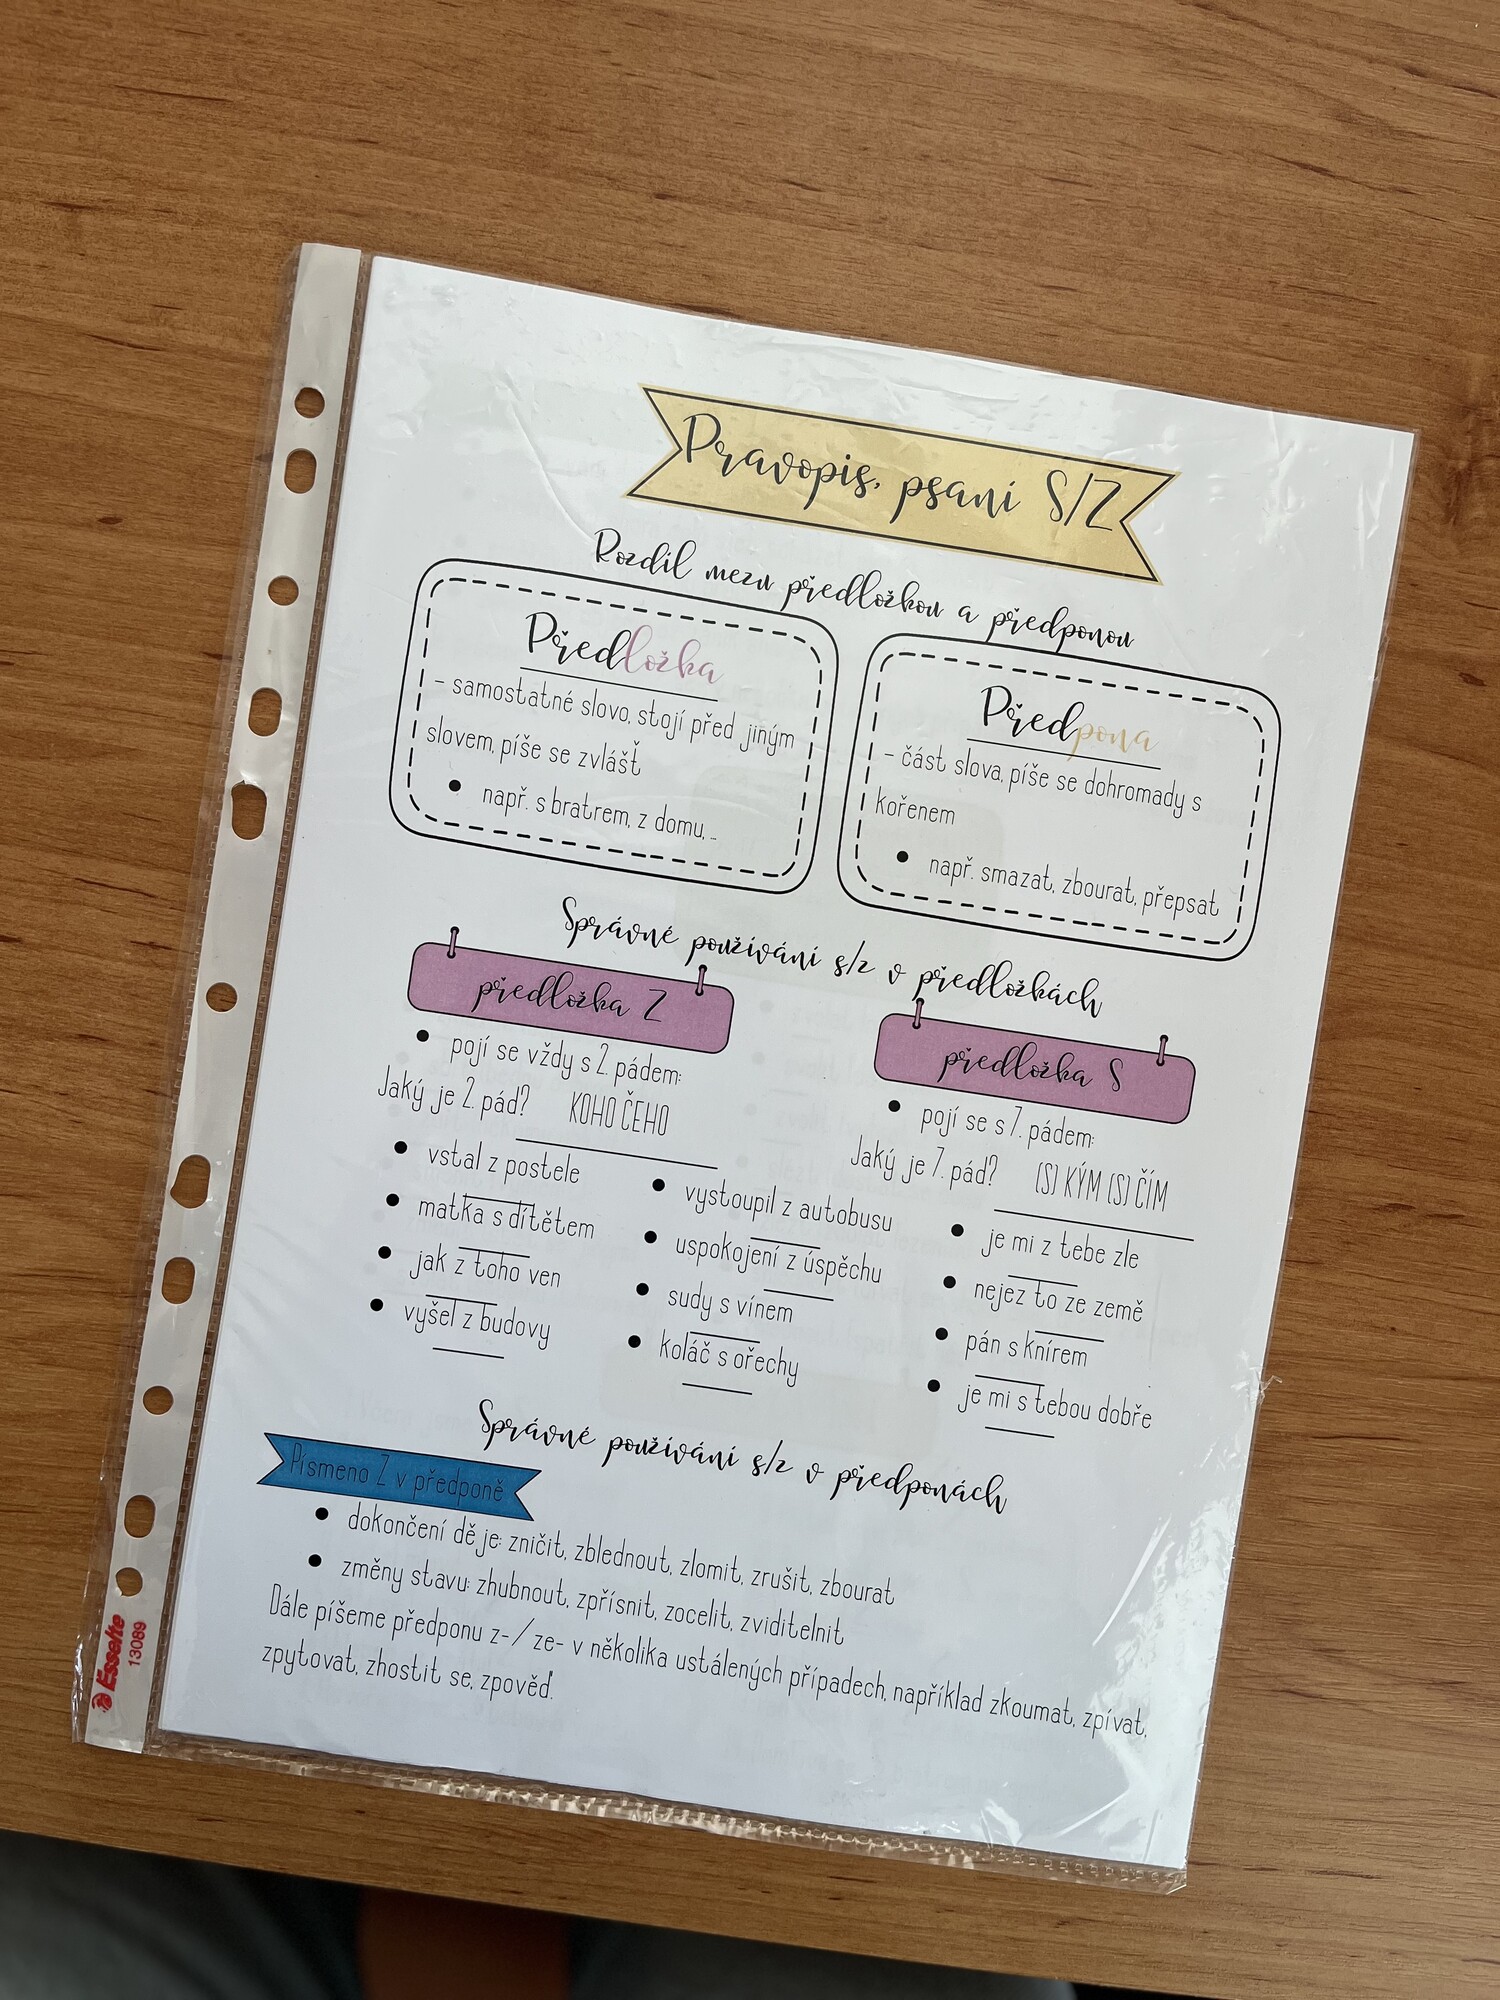 Pravopis, psaní S/Z
Rozdíl mezu předložkou a předponou
Předložka
- samostatné slovo, stojí před jiným
slovem, píše se zvlášť
• např. s bratrem, z domu, ...
Předpona
- část slova, píše se dohromady s
kořenem
• např. smazat, zbourat, přepsat
Správné používání s/z v předložkách
předložka Z
• pojí se vždy s 2. pádem:
Jaký je 2. pád? KOHO ČEHO
předložka S
• pojí se s 7. pádem:
Jaký je 7. pád? (S) KÝM (S) ČÍM
• vstal z postele
• matka s dítětem
• jak z toho ven
• vyšel z budovy
• vystoupil z autobusu
• uspokojení z úspěchu
• sudy s vínem
• koláč s ořechy
• je mi z tebe zle
• nejez to ze země
• pán s knírem
• je mi s tebou dobře
Správné používání s/z v předponách
Písmeno Z v předponě
• dokončení děje: zničit, zblednout, zlomit, zrušit, zbourat
• změny stavu: zhubnout, zpřísnit, zocelit, zviditelnit
Dále píšeme předponu z-/ze- v několika ustálených případech, například zkoumat, zpívat,
zpytovat, zhostit se, zpověď.
Esselte
13089